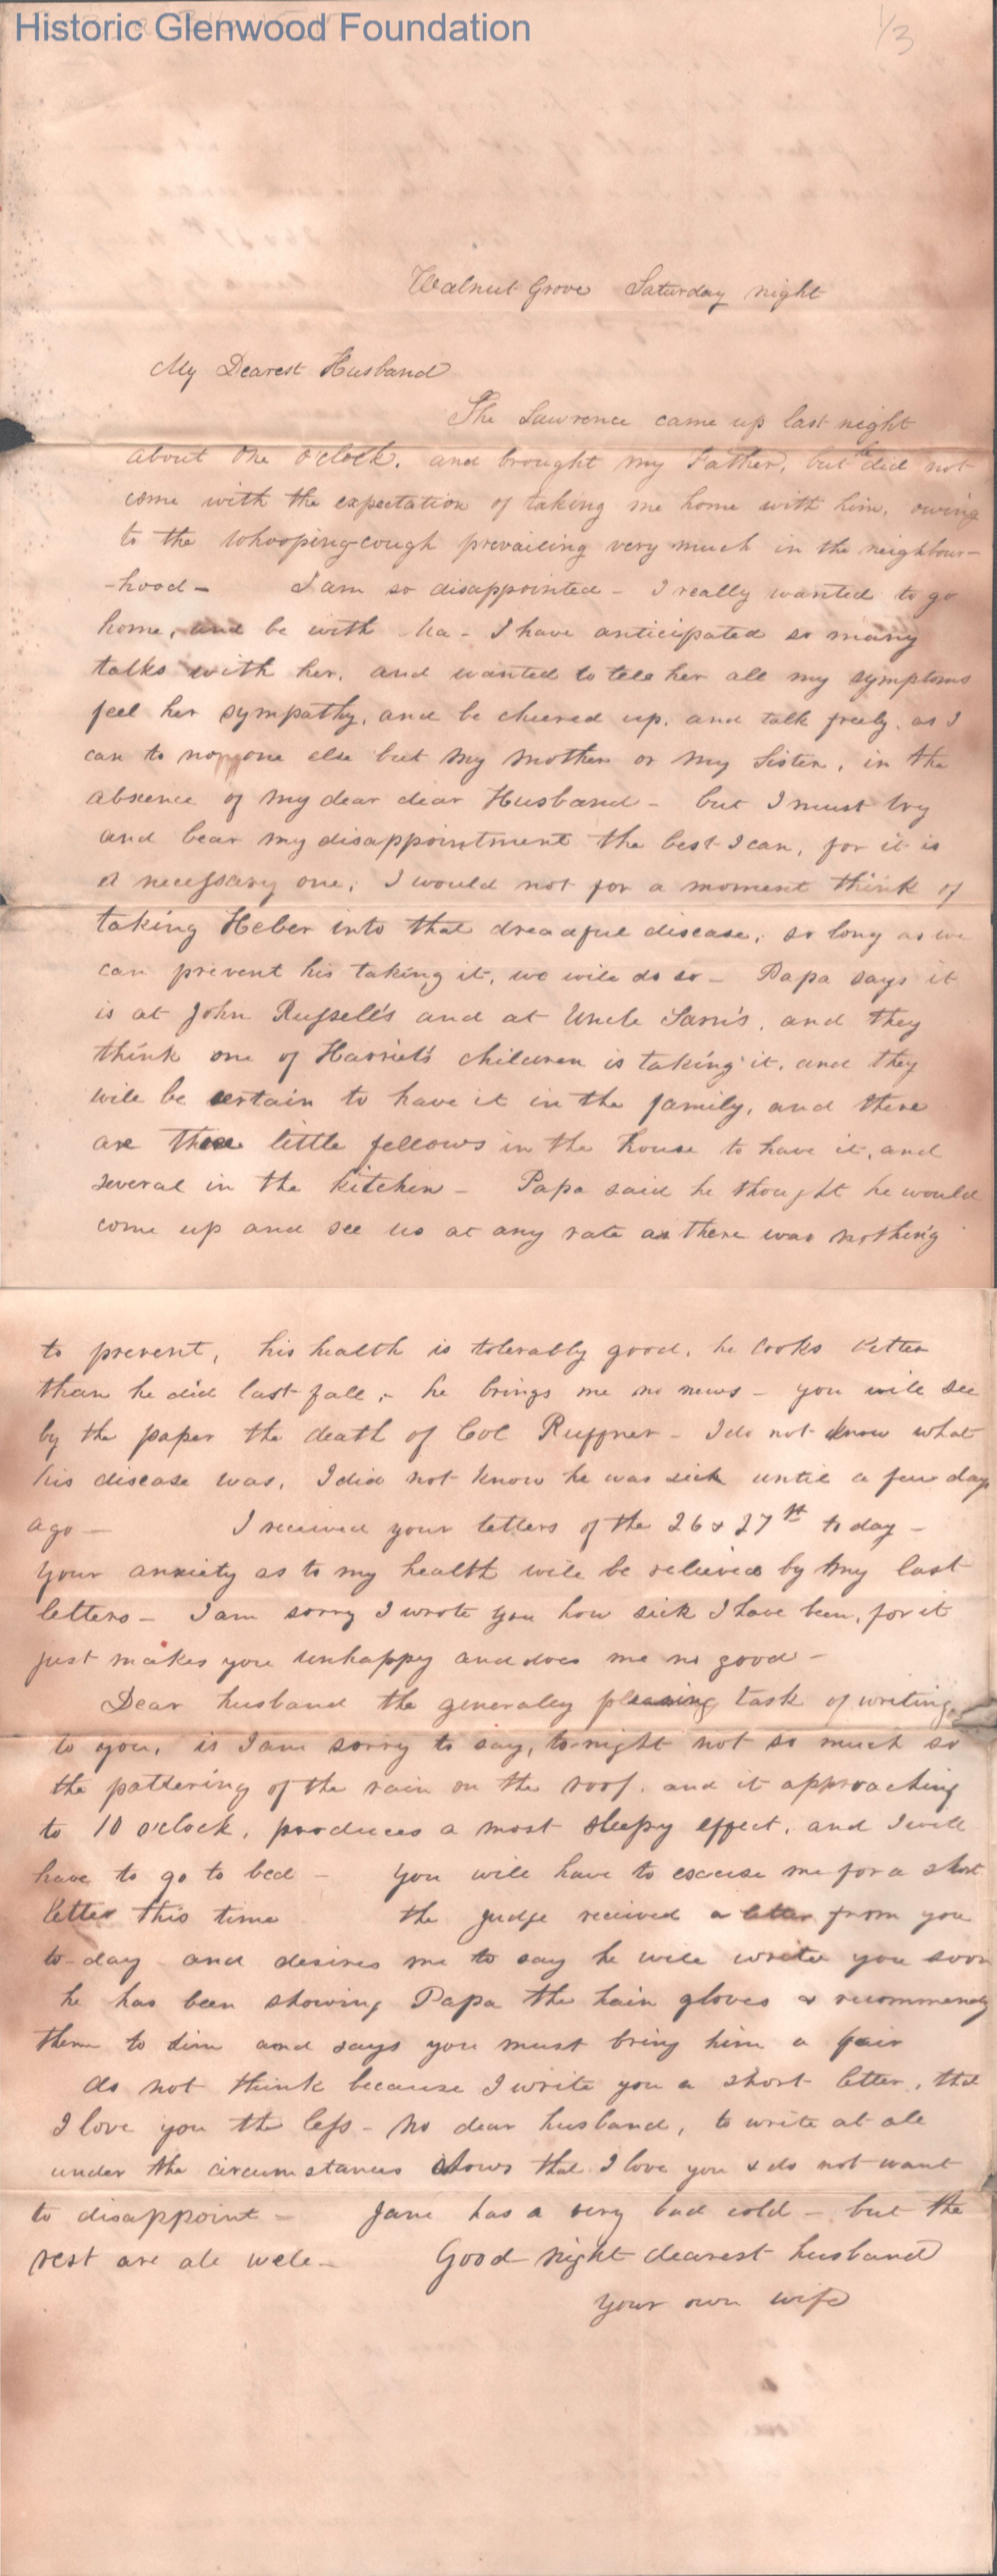 Historic Glenwood Foundation
1/3
Walnut Grove Saturday night
My Dearest Husband
The Lawrence came up last night
about one o'clock. and brought my Father, but he did not
come with the expectation of taking me home with him, owing
to the whooping-cough prevailing very much in the neighbour-
-hood - I am so disappointed - I really wanted to go
home, and be with Ma - I have anticipated so many
talks with her, and wanted to tell her all my symptoms
feel her sympathy, and be cheered up, and talk freely, as I
can to no one else but my mother or my Sister, in the
absence of my dear dear Husband - but I must try
and bear my disappointment the best I can, for it is
a necessary one; I would not for a moment think of
taking Heber into that dreadful disease, so long as we
can prevent his taking it, we will do so - Papa says it
is at John Russell's and at Uncle Sam's, and they
think one of Harriet's children is taking it, and they
will be certain to have it in the family, and there
are three little fellows in the house to have it, and
several in the kitchen - Papa said he thought he would
come up and see us at any rate as there was nothing
to prevent, his health is tolerably good, he looks better
than he did last fall, - he brings me no news - you will see
by the paper the death of Col Ruffner - I do not know what
his disease was, I did not know he was sick until a few days
ago - I received your letters of the 26 & 27th to day -
your anxiety as to my health will be relieved by my last
letters - I am sorry I wrote you how sick I have been, for it
just makes you unhappy and does me no good -
Dear husband the generally pleasing task of writing
to you, is I am sorry to say, to-night not so much so
the pattering of the rain on the roof, and it approaching
to 10 o'clock, produces a most sleepy effect, and I will
have to go to bed - You will have to excuse me for a short
letter this time the judge received a letter from you
to-day and desires me to say he will write you soon
he has been showing Papa the hair gloves & recommends
them to him and says you must bring him a pair
do not think because I write you a short letter, that
I love you the less - No dear husband, to write at all
under the circumstances shows that I love you & do not want
to disappoint - Jane has a very bad cold - but the
rest are all well - Good night dearest husband
your own wife